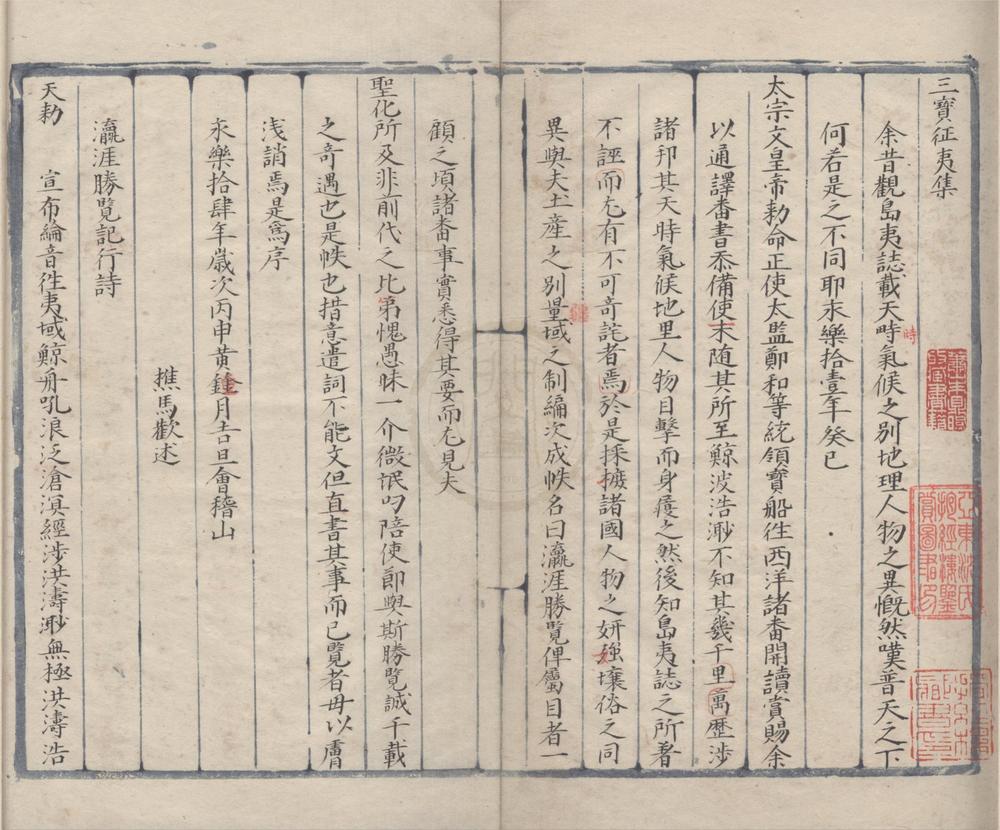 三寶征夷集
余昔觀島夷誌載天時氣候之别地理人物之異慨然嘆普天之下
時
何若是之不同耶永樂拾壹年癸巳
太宗文皇帝勅命正使太監鄭和等統領寶船徃西洋諸番開讀賞賜余
以通譯番書忝備使末随其所至鯨波浩渺不知其幾千里萬歷涉
諸邦其天時氣候地里人物目擊而身履之然後知島夷誌之所著
不誣而尤有不可竒詫者焉於是採摭諸國人物之妍強壤俗之同
異與夫土産之别量域之制編次成帙名曰瀛涯勝覽俾屬目者一
顧之頃諸番事實悉得其要而尤見夫
聖化所及非前代之比第愧愚昧一介微氓叨陪使節與斯勝覽誠千載
之竒遇也是帙也措意遣詞不能文但直書其事而已覽者毋以膚
浅誚焉是爲序
永樂拾肆年歳次丙申黄鍾月吉旦會稽山
樵馬歡述
瀛涯勝覽記行詩
天勅 宣布綸音徃夷域鯨舟吼浪泛滄溟經涉洪濤渺無極洪濤浩